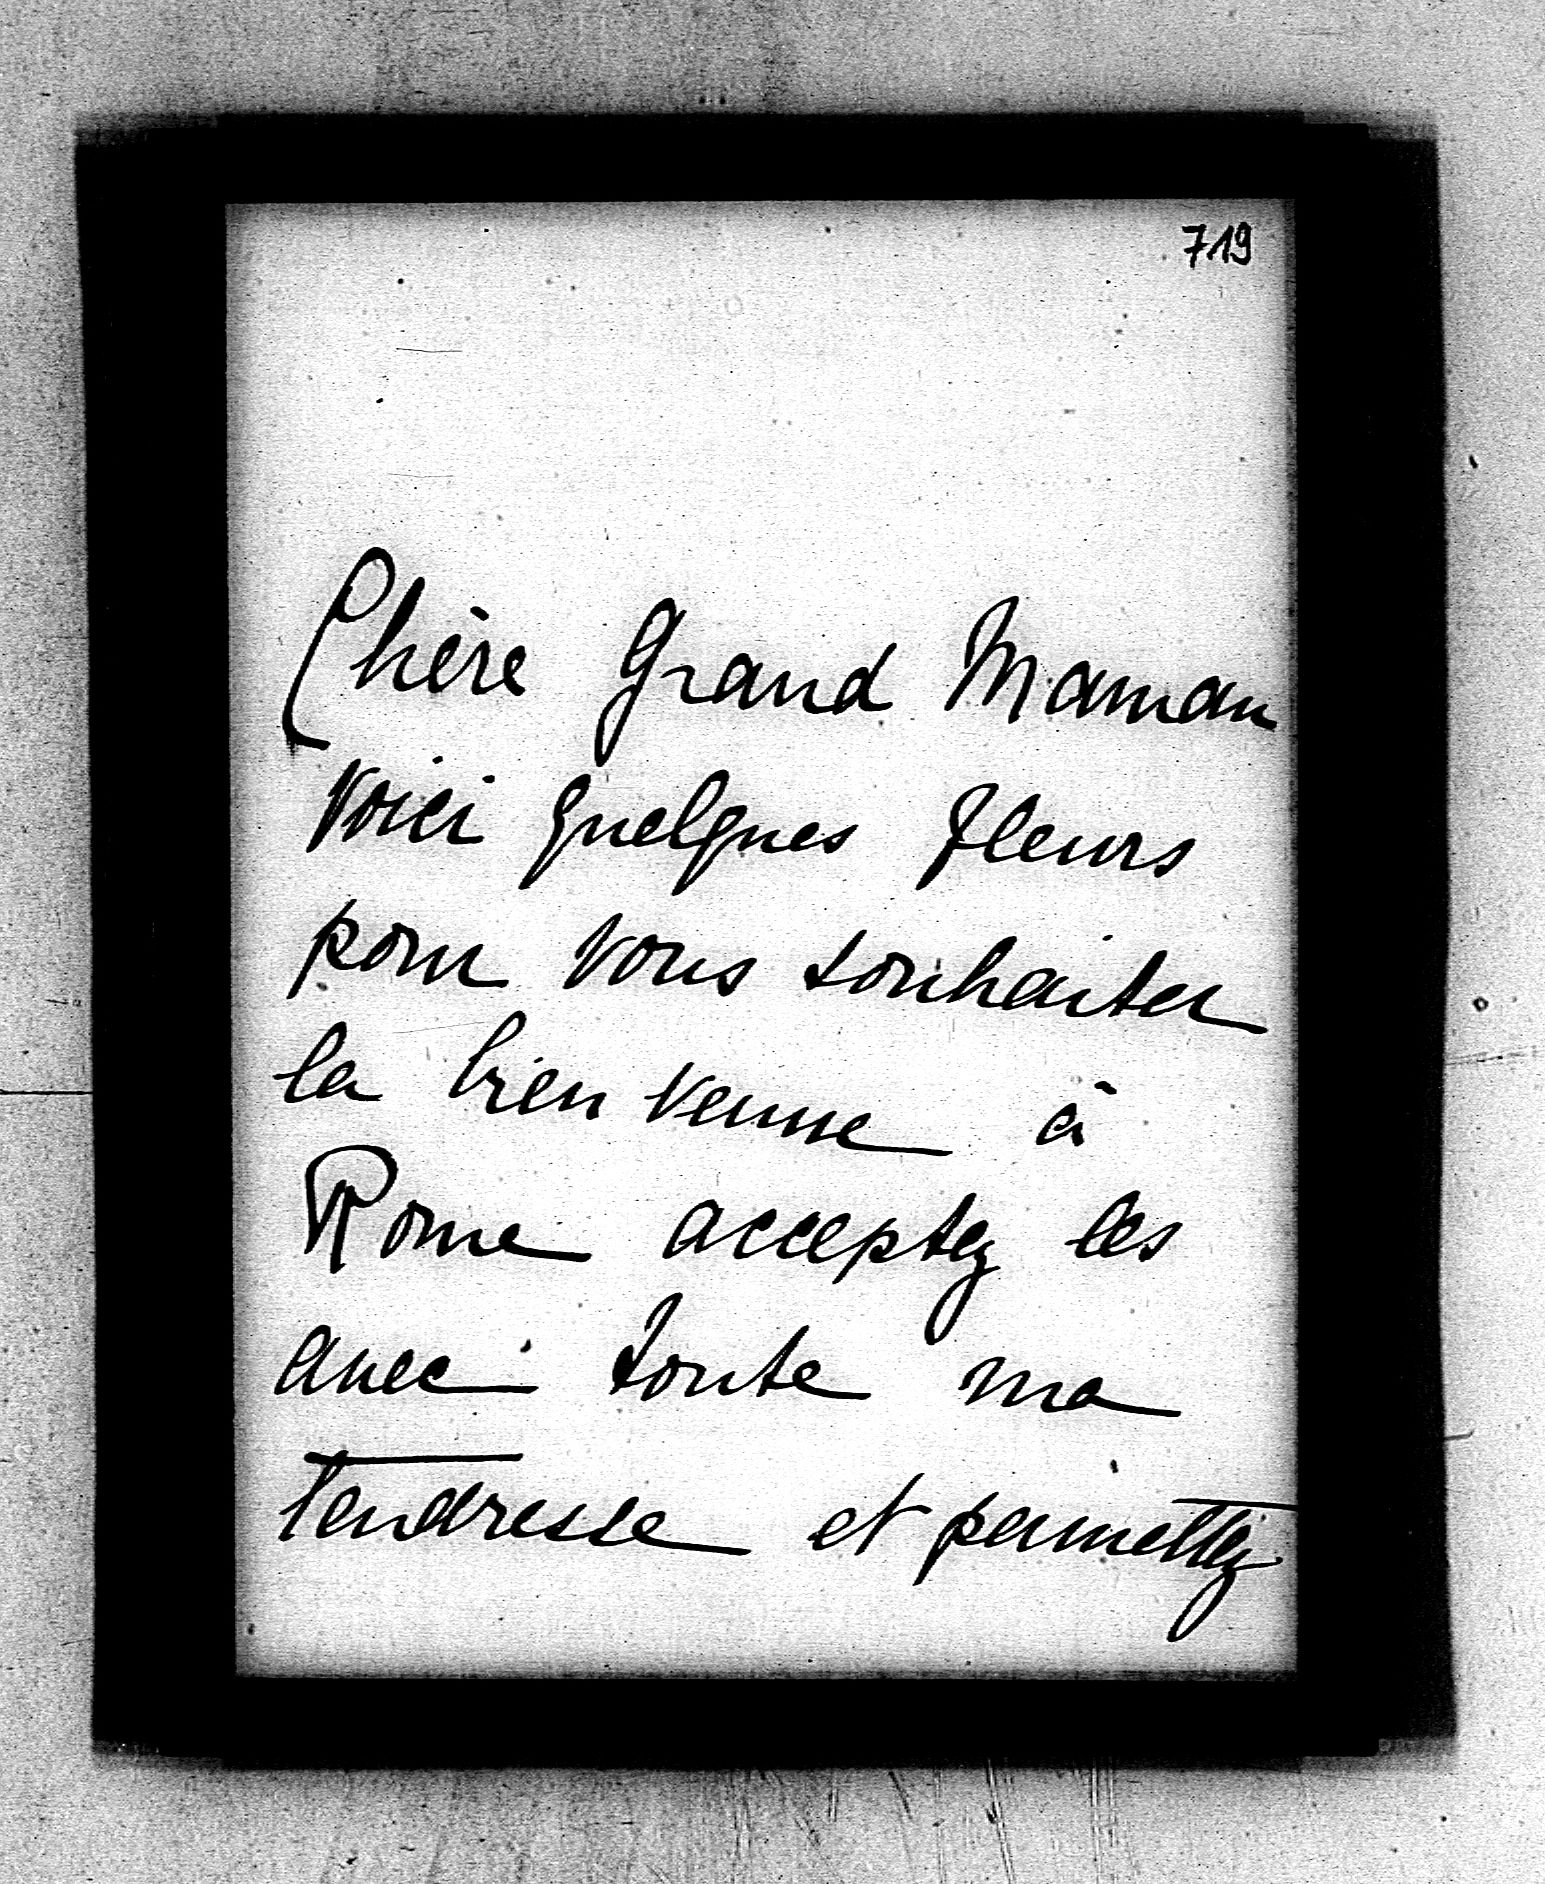 719
Chère Grand Maman
voici quelques fleurs
pour vous souhaiter
la bien venue à
Rome acceptez les
avec toute ma
tendresse et permettez